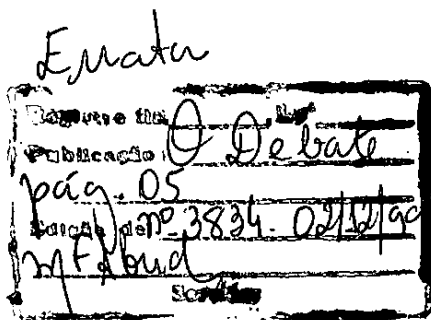 Errata
Registro Nº
Publicação O Debate
pág. 05
Edição de nº 3834 - 02/12/90